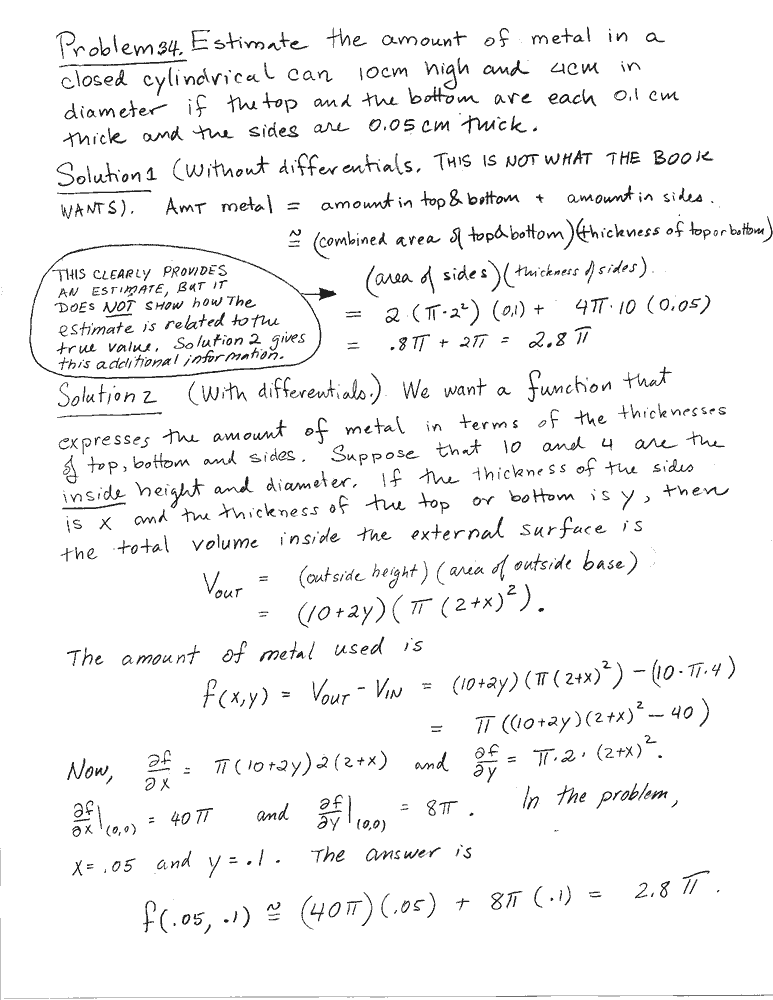 Problem 34. Estimate the amount of metal in a
closed cylindrical can 10cm high and 4cm in
diameter if the top and the bottom are each 0.1 cm
thick and the sides are 0.05 cm thick.
Solution 1 (Without differentials. THIS IS NOT WHAT THE BOOK
WANTS). AMT metal = amount in top & bottom + amount in sides.
≅ (combined area of top & bottom)(thickness of top or bottom)
THIS CLEARLY PROVIDES
AN ESTIMATE, BUT IT
DOES NOT SHOW how THE
estimate is related to the
true value. Solution 2 gives
this additional information.
(area of sides)(thickness of sides).
= 2 (π·2²) (0.1) + 4π·10 (0.05)
= .8π + 2π = 2.8π
Solution 2 (With differentials.) We want a function that
expresses the amount of metal in terms of the thicknesses
of top, bottom and sides. Suppose that 10 and 4 are the
inside height and diameter. If the thickness of the sides
is x and the thickness of the top or bottom is y, then
the total volume inside the external surface is
V_OUT = (outside height)(area of outside base)
= (10+2y)(π(2+x)²).
The amount of metal used is
f(x,y) = V_OUT - V_IN = (10+2y)(π(2+x)²) - (10·π·4)
= π((10+2y)(2+x)² - 40)
Now, ∂f/∂x = π(10+2y)2(2+x) and ∂f/∂y = π·2·(2+x)².
∂f/∂x|(0,0) = 40π and ∂f/∂y|(0,0) = 8π. In the problem,
x = .05 and y = .1. The answer is
f(.05, .1) ≅ (40π)(.05) + 8π(.1) = 2.8π.